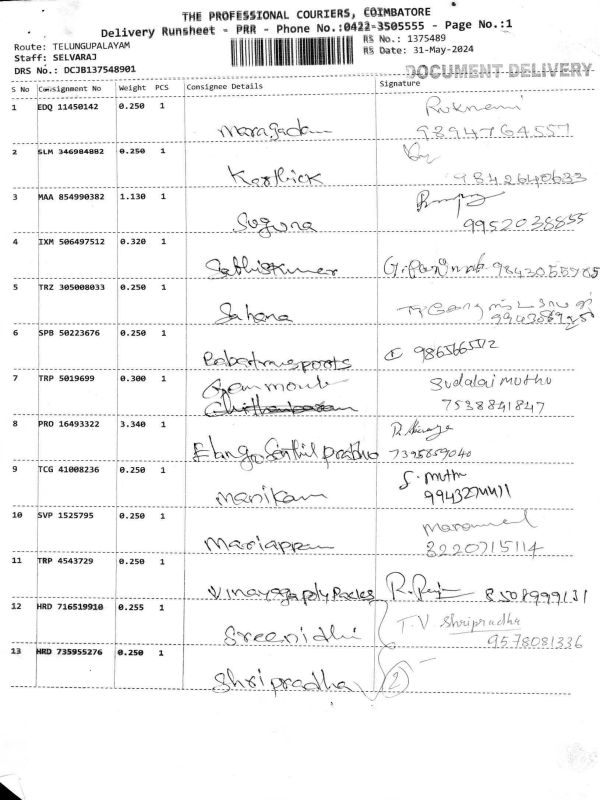 THE PROFESSIONAL COURIERS, COIMBATORE
Delivery Runsheet - PRR - Phone No.:0422-3505555 - Page No.:1
Route: TELUNGUPALAYAM
RS No.: 1375489
Staff: SELVARAJ
RS Date: 31-May-2024
DRS No.: DCJB137548901
DOCUMENT DELIVERY
S No Consignment No Weight PCS Consignee Details Signature
1 EDQ 11450142 0.250 1
Rukmani
Maragadam 9894764557
2 SLM 346984882 0.250 1
Karthick 9842640633
3 MAA 854990382 1.130 1
Suguna 9952038855
4 IXM 506497512 0.320 1
Sathiskumar
5 TRZ 305008033 0.250 1
Sahana
6 SPB 50223676 0.250 1
Pabatransports
7 TRP 5019699 0.300 1
Sudalai muthu
7538841847
8 PRO 16493322 3.340 1
Elango Senthil prabhu 7395859040
9 TCG 41008236 0.250 1
S. muthu
Manikam
10 SVP 1525795 0.250 1
Mariappan 8220715114
11 TRP 4543729 0.250 1
Vinayaga poly Packs
12 HRD 716519910 0.255 1
T.V Shripradha
Sreenidhi 9578081336
13 HRD 735955276 0.250 1
Shripradha 2